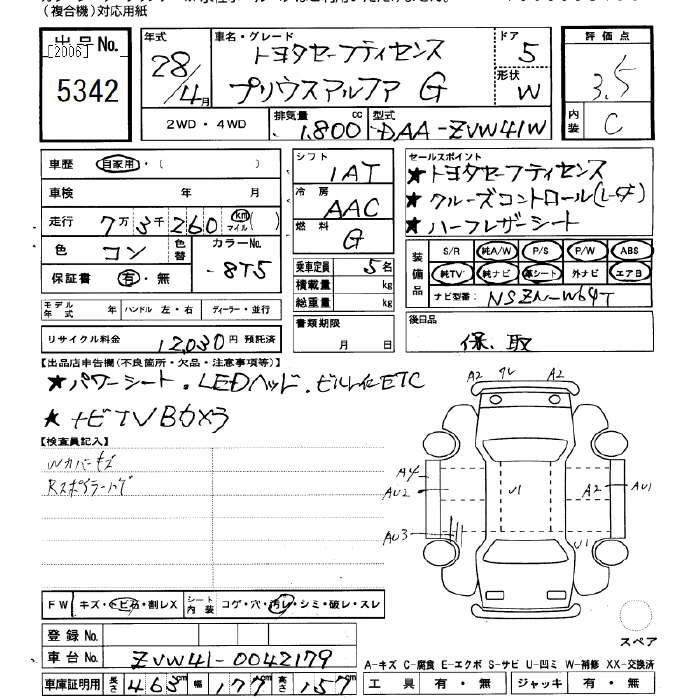 (複合機)対応用紙
出品No.
[2006]
5342
年式 28/4月
車名・グレード トヨタセーフティセンス
プリウスアルファ G
ドア 5
形状 W
評価点 3.5
内装 C
2WD・4WD
排気量 1,800 cc
型式 DAA-ZVW41W
車歴 自家用・( )
車検 年 月
走行 7万3千260 km マイル( )
色 コン
色替
カラーNo. 8T5
保証書 有・無
シフト 1AT
冷房 AAC
燃料 G
乗車定員 5名
積載量 kg
総重量 kg
セールスポイント
★トヨタセーフティセンス
★クルーズコントロール(レーダー)
★ハーフレザーシート
装備品
S/R 純A/W P/S P/W ABS
純TV 純ナビ 革シート 外ナビ エアB
ナビ型番: NSZN-W64T
モデル年式 年 ハンドル 左・右 ディーラー・並行
リサイクル料金 12,030円 預託済
書類期限 月 日
後日品
保、取
【出品店申告欄(不良箇所・欠品・注意事項等)】
★パワーシート・LEDヘッド・ビルトインETC
★ナビTVBカメラ
【検査員記入】
Wカバーキズ
Rスポイラー
A2 A2
A4
AU2
AU3
U1
A2
AU1
U1
FW キズ・トビ石・割レX
シート内装 コゲ・穴・汚レ・シミ・破レ・スレ
登録No.
車台No. ZVW41-0042179
スペア
A-キズ C-腐食 E-エクボ S-サビ U-凹ミ W-補修 XX-交換済
車庫証明用 長さ 463cm 幅 177cm 高さ 157cm
工具 有・無 ジャッキ 有・無